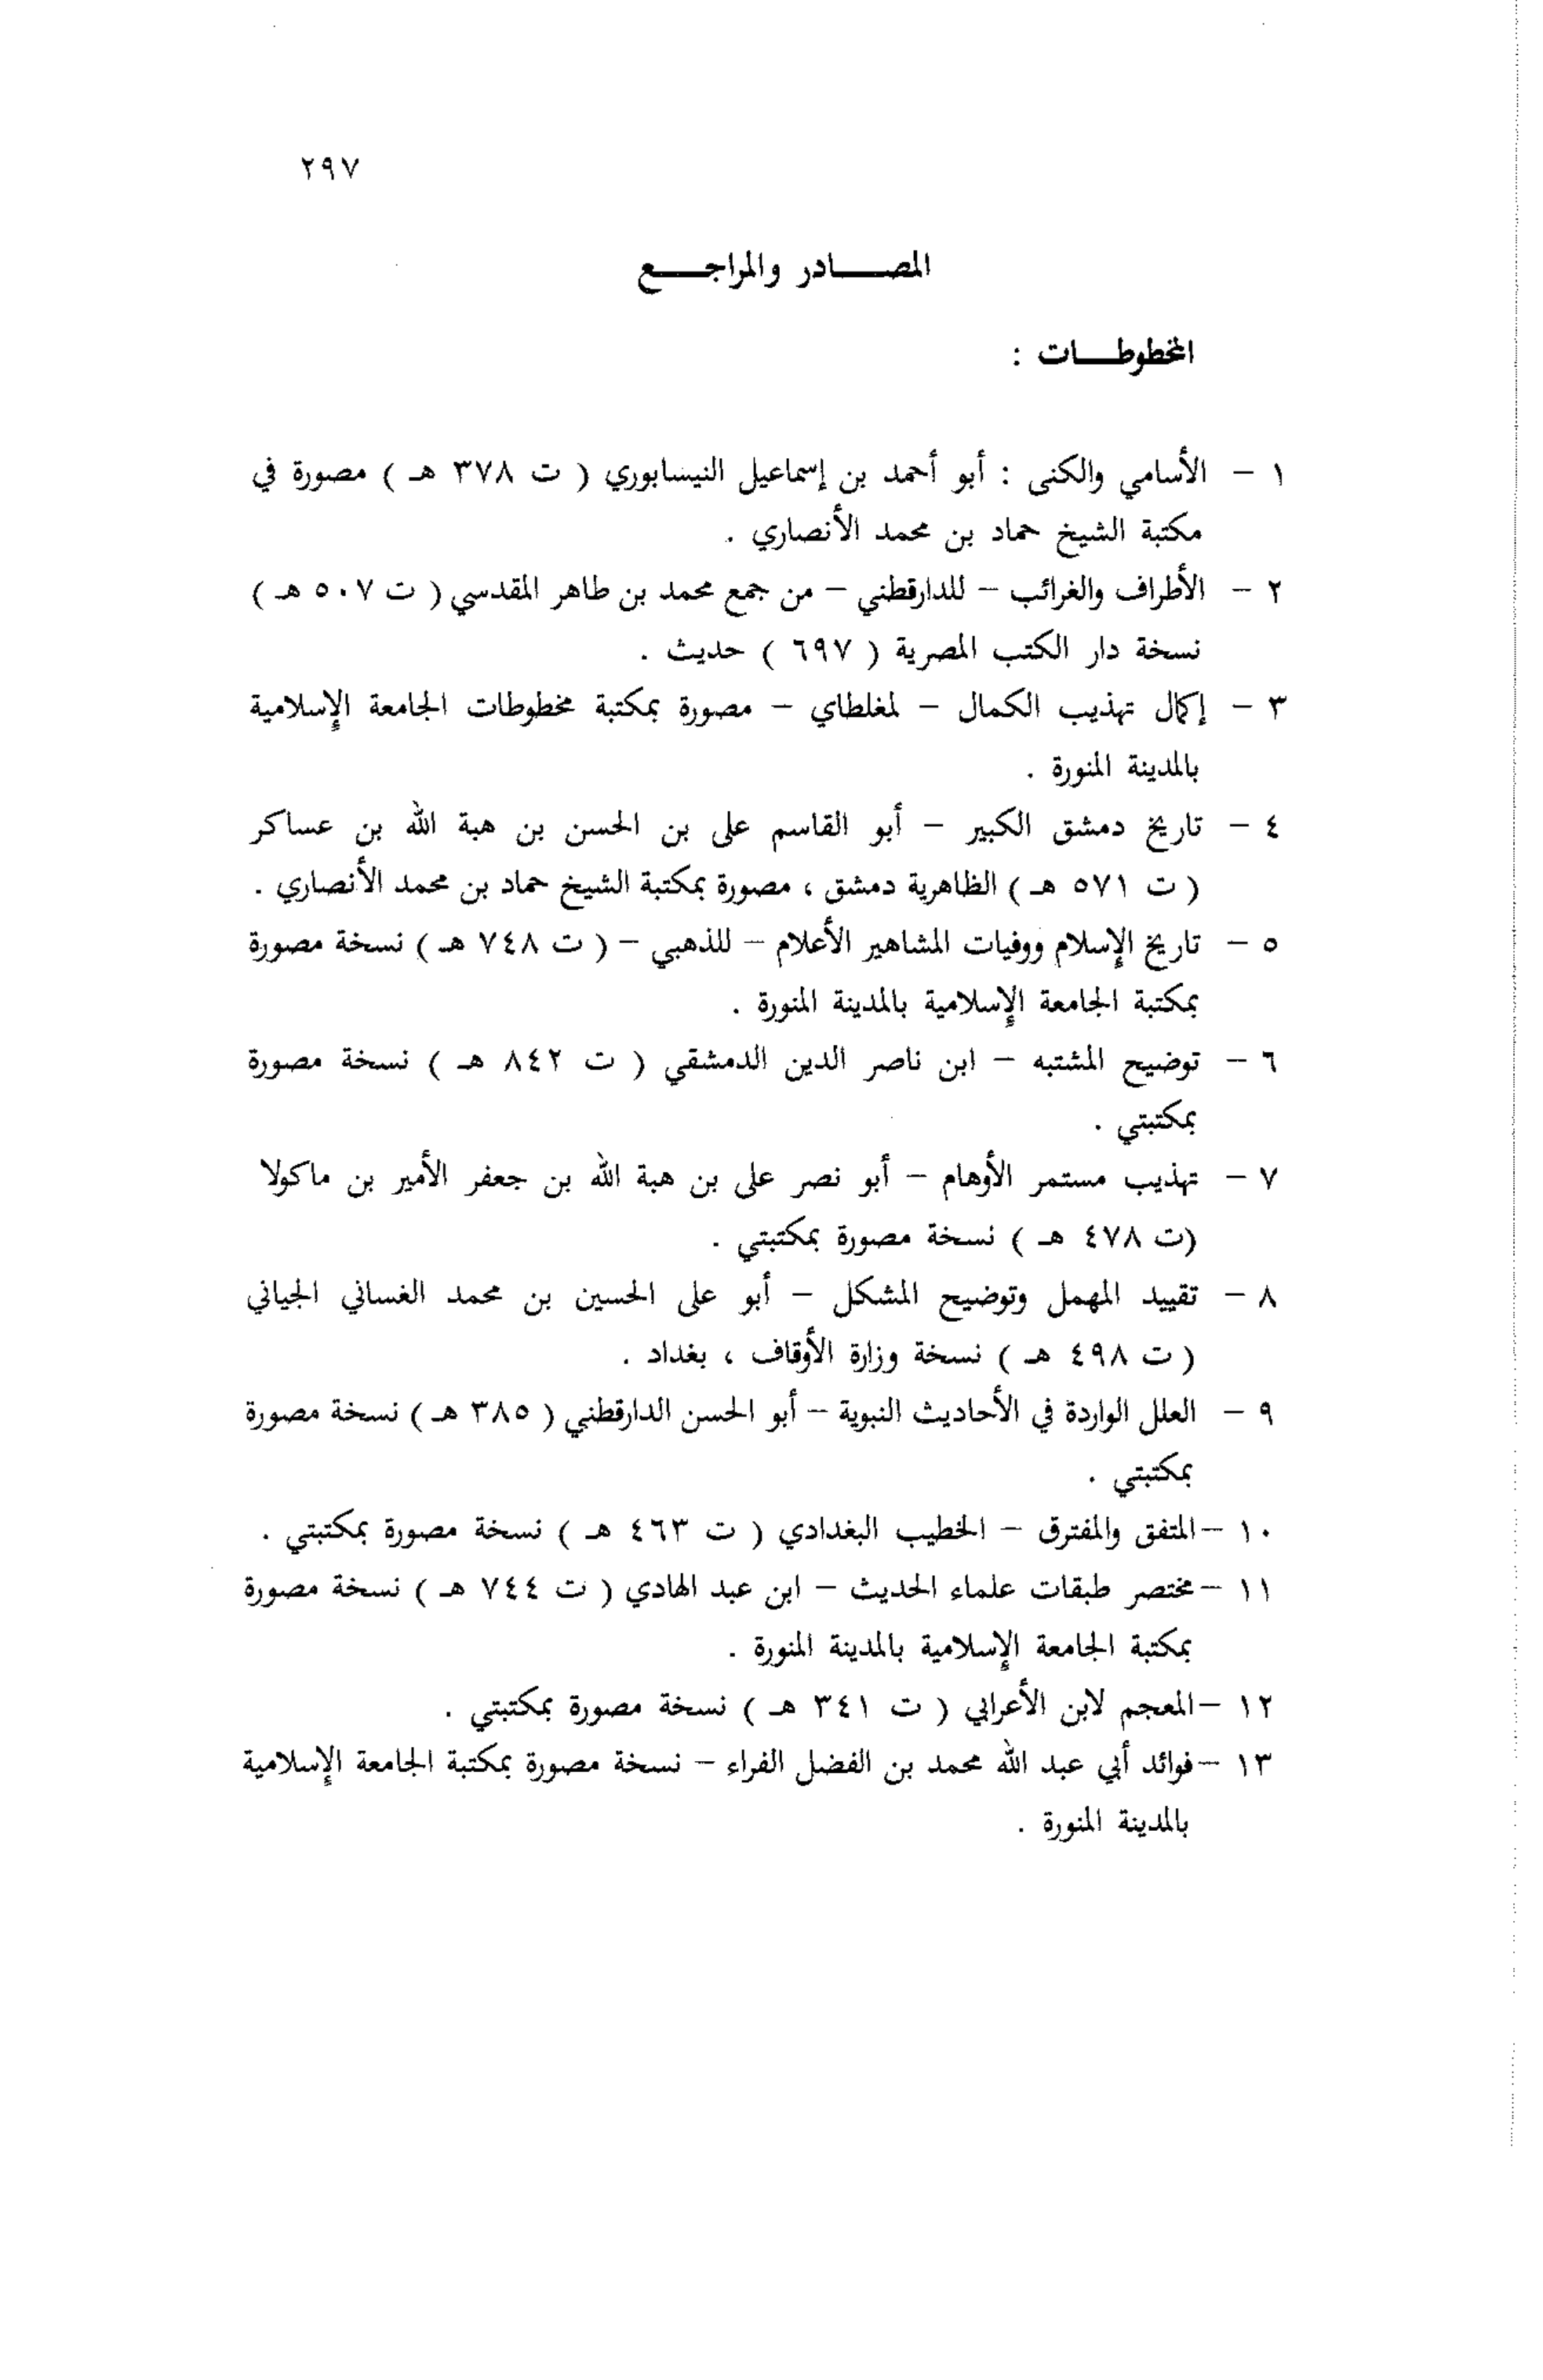 ٢٩٧
المصـــادر والمراجـــع
المخطوطـــات :
١ – الأسامي والكنى : أبو أحمد بن إسماعيل النيسابوري ( ت ٣٧٨ هـ ) مصورة في
مكتبة الشيخ حماد بن محمد الأنصاري .
٢ – الأطراف والغرائب – للدارقطني – من جمع محمد بن طاهر المقدسي ( ت ٥٠٧ هـ )
نسخة دار الكتب المصرية ( ٦٩٧ ) حديث .
٣ – إكمال تهذيب الكمال – لمغلطاي – مصورة بمكتبة مخطوطات الجامعة الإسلامية
بالمدينة المنورة .
٤ – تاريخ دمشق الكبير – أبو القاسم على بن الحسن بن هبة الله بن عساكر
( ت ٥٧١ هـ ) الظاهرية دمشق ، مصورة بمكتبة الشيخ حماد بن محمد الأنصاري .
٥ – تاريخ الإسلام ووفيات المشاهير الأعلام – للذهبي – ( ت ٧٤٨ هـ ) نسخة مصورة
بمكتبة الجامعة الإسلامية بالمدينة المنورة .
٦ – توضيح المشتبه – ابن ناصر الدين الدمشقي ( ت ٨٤٢ هـ ) نسخة مصورة
بمكتبتي .
٧ – تهذيب مستمر الأوهام – أبو نصر على بن هبة الله بن جعفر الأمير بن ماكولا
(ت ٤٧٨ هـ ) نسخة مصورة بمكتبتي .
٨ – تقييد المهمل وتوضيح المشكل – أبو على الحسين بن محمد الغساني الجياني
( ت ٤٩٨ هـ ) نسخة وزارة الأوقاف ، بغداد .
٩ – العلل الواردة في الأحاديث النبوية – أبو الحسن الدارقطني ( ٣٨٥ هـ ) نسخة مصورة
بمكتبتي .
١٠ –المتفق والمفترق – الخطيب البغدادي ( ت ٤٦٣ هـ ) نسخة مصورة بمكتبتي .
١١ –مختصر طبقات علماء الحديث – ابن عبد الهادي ( ت ٧٤٤ هـ ) نسخة مصورة
بمكتبة الجامعة الإسلامية بالمدينة المنورة .
١٢ –المعجم لابن الأعرابي ( ت ٣٤١ هـ ) نسخة مصورة بمكتبتي .
١٣ –فوائد أبي عبد الله محمد بن الفضل الفراء – نسخة مصورة بمكتبة الجامعة الإسلامية
بالمدينة المنورة .